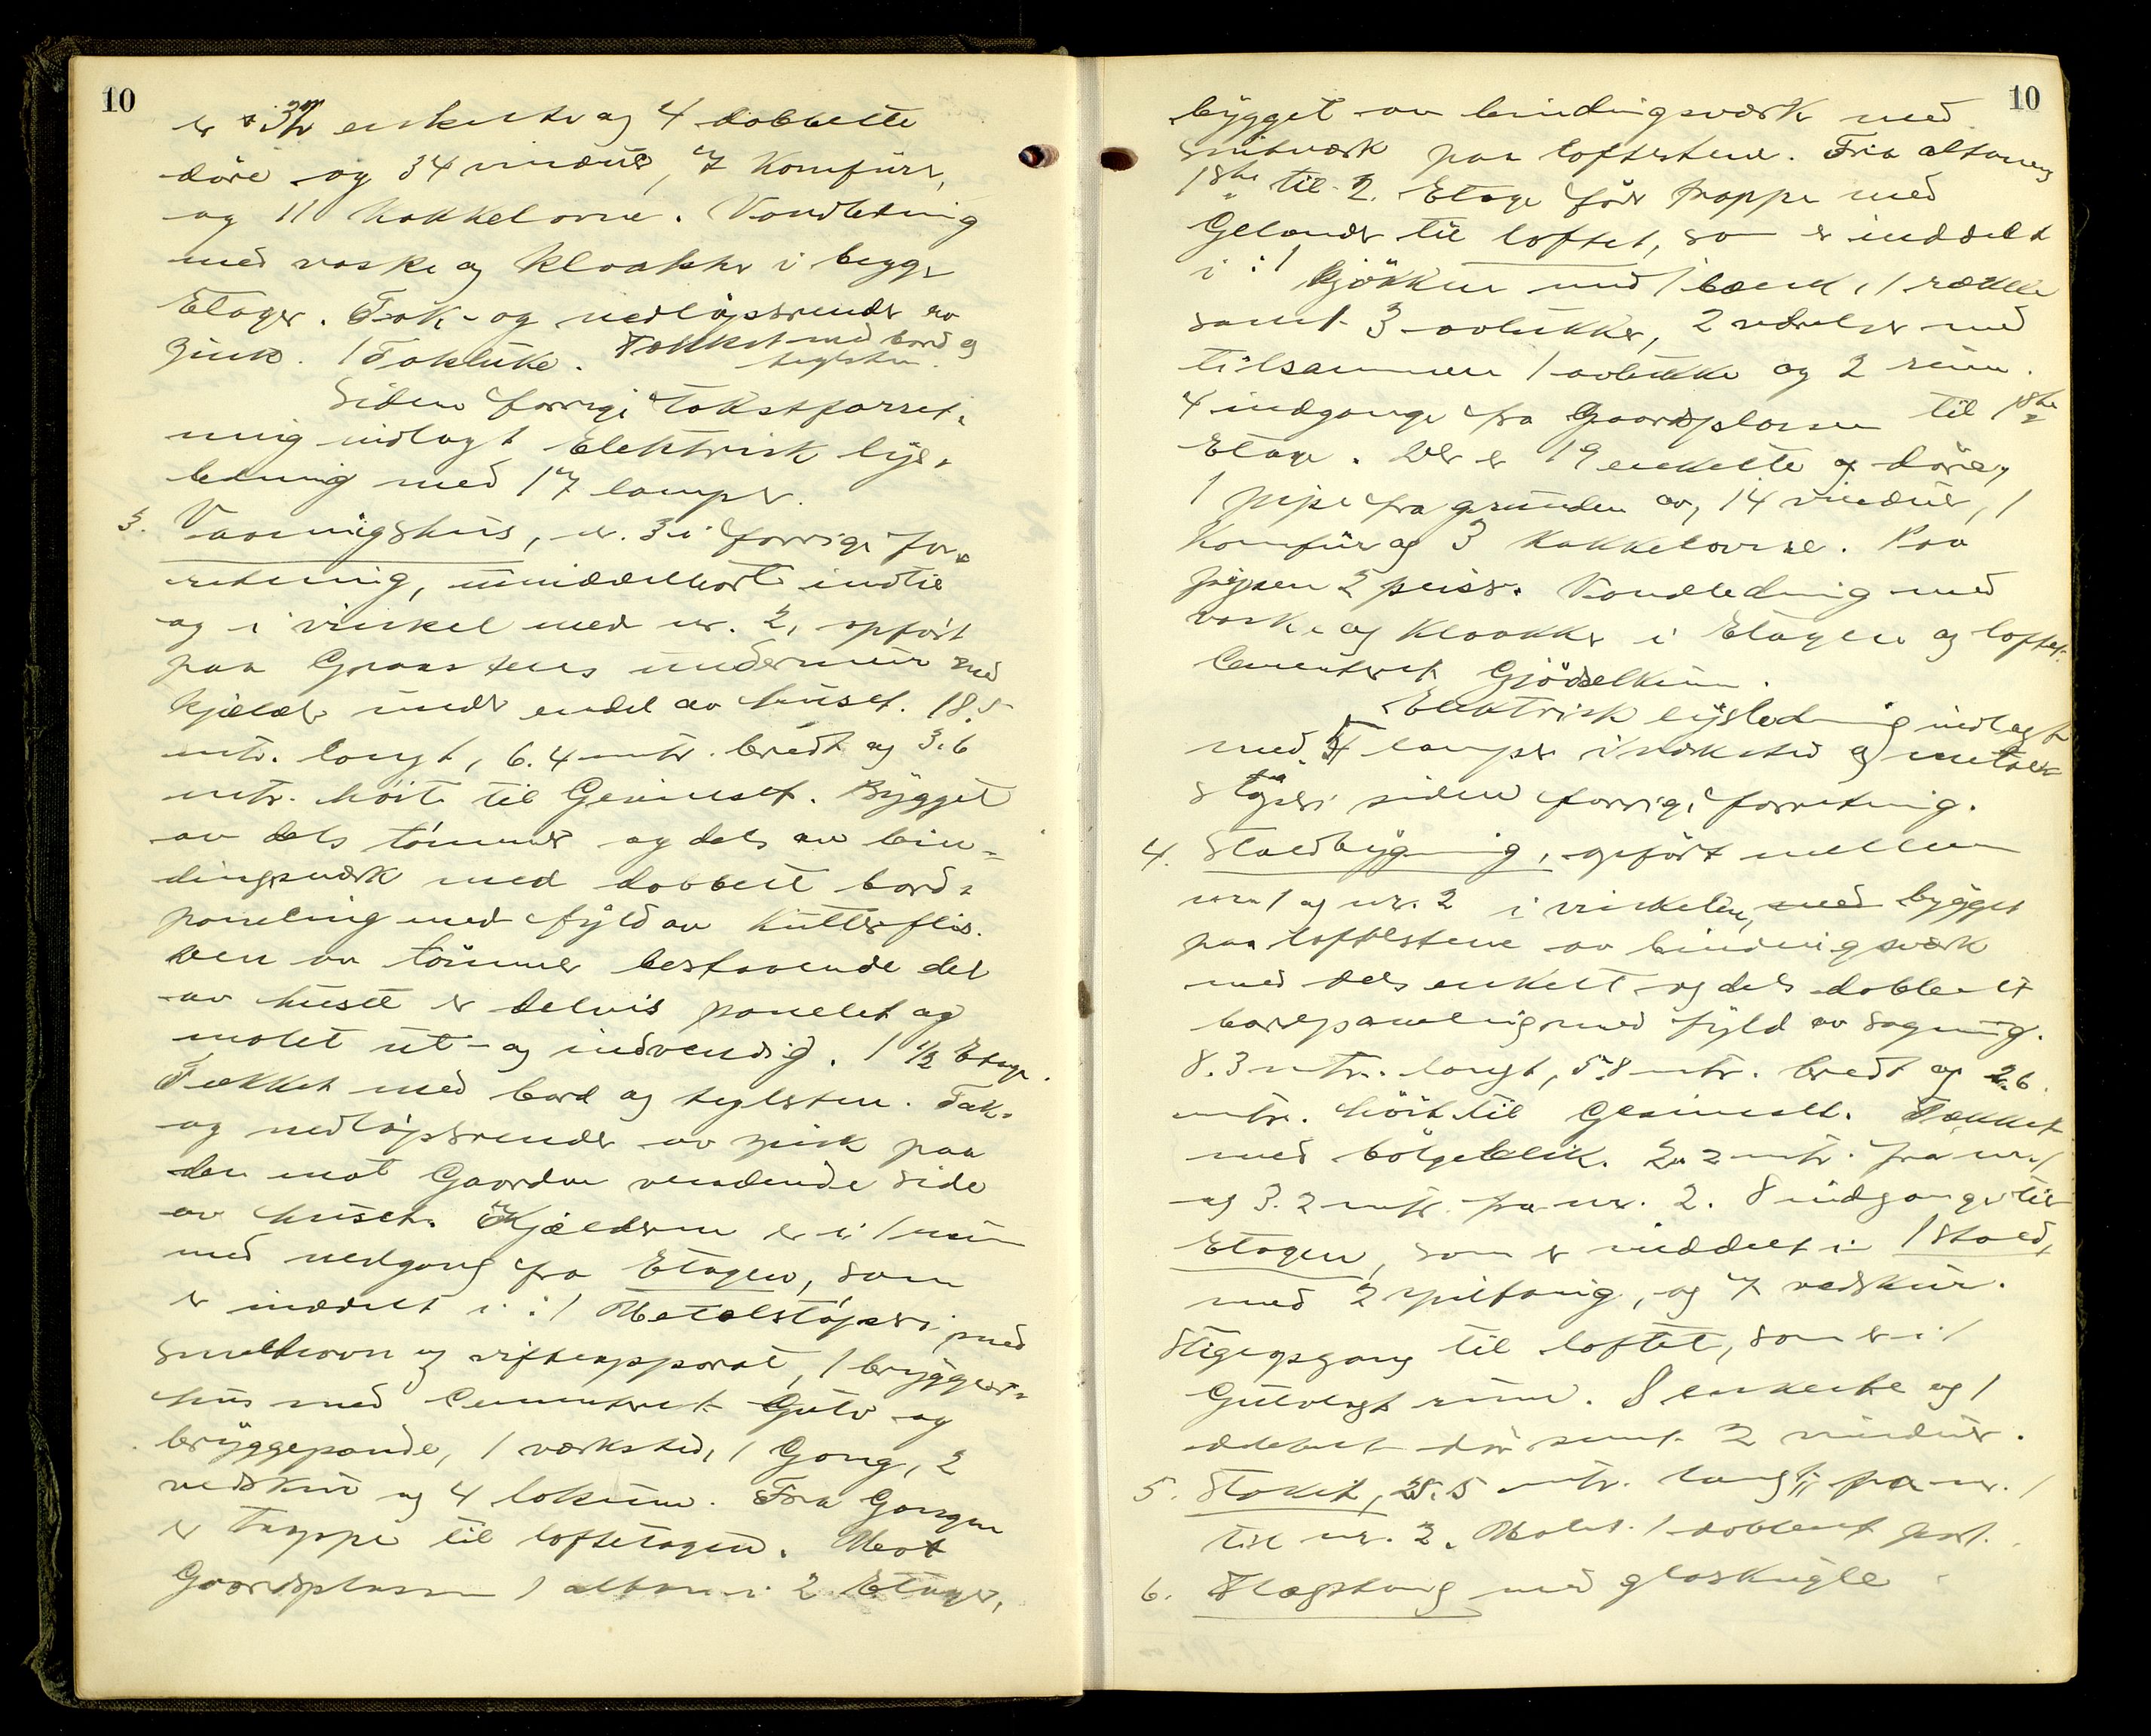 10
er 32 enkelte og 4 dobbelte
döre og 34 vinduer, 7 Komfürer,
og 11 kakkelovne. Vandledning
med vaske og kloakker i begge
Etager. Tak- og nedløpsrender av
Zink. 1 Takluke. Tækket med bord og
teglsten.
Siden forrige Takstforret-
ning indlagt Elektrisk lys-
ledning med 17 lamper.
3. Vaaningshus, nr. 3 i forrige for-
retning, umiddelbart indtil
og i vinkel med nr. 2, opført
paa Graastens undermur med
kjælder under endel av huset. 18.5
mtr. langt, 6.4 mtr. bredt og 3.6
mtr. höit til Gesimset. Bygget
av dels tömmer og dels av bin-
dingsverk med dobbelt bord-
paneling med fyld av kutterflis.
Den av tömmer bestaaende del
av huset er delvis panelet og
malet ut- og indvendig. 1 1/2 Etage.
Tækket med bord og teglsten. Tak-
og nedløpsrender av zink paa
den mot Gaarden vendende side
av huset. Kjælderen er i 1 rum
med nedgang fra Etagen, som
er inddelt i: 1 Metalstøperi med
smelteovn og vifteapparat, 1 brygger-
hus med Cementeret Gulv og
bryggepande, 1 værksted, 1 Gang, 2
vedskur og 4 lokum. Fra Gangen
er Trappe til loftetagen. Mot
Gaardsplassen 1 altan i 2 Etager,
10
bygget av bindingsværk med
snitværk paa loftstene. Fra altanens
1ste til 2. Etage fører trappe med
Gelænder til loftet, som er inddelt
i: 1 Kjökken med 1 bænk, 1 række
samt 3 avlukker, 2 værelser med
tilsammen 1 avlukke og 2 rum.
4 indgange fra Gaardsplassen til 1ste
Etage. Der er 19 enkelte döre,
1 pipe fra grunden av, 14 vinduer, 1
Komfür og 3 Kakkelovne. Paa
pipen 2 peiser. Vandledning med
vaske og Kloakker i Etagen og loftet.
Cementert Gjödselkum.
Elektrisk lysledning indlagt
med 5 lamper i værksted og metal-
støperi siden forrige forretning.
4. Staldbygning, opført mellem
nr. 1 og nr. 2 i vinkelen, med bygget
paa loftstene av bindingsverk
med dels enkelt og dels dobbelt
bordpaneling med fyld av sagmug.
8.3 mtr. langt, 5.8 mtr. bredt og 2.6
mtr. höit til Gesimset. Tækket
med bölgeblik. 2.2 mtr. fra nr. 1
og 3.2 mtr. fra nr. 2. 8 indgange til
Etagen, som er inddelt i: 1 Stald,
med 2 spiltaug, og 7 vedskur.
Stigeopgang til loftet, som er i 1
Gulvlagt rum. 8 enkelte og 1
dobbelt dör samt 2 vinduer.
5. Stakit, 25.5 mtr. langt, fra nr. 1
til nr. 2. Malet. 1 dobbelt port.
6. Flagstang med glaskugle